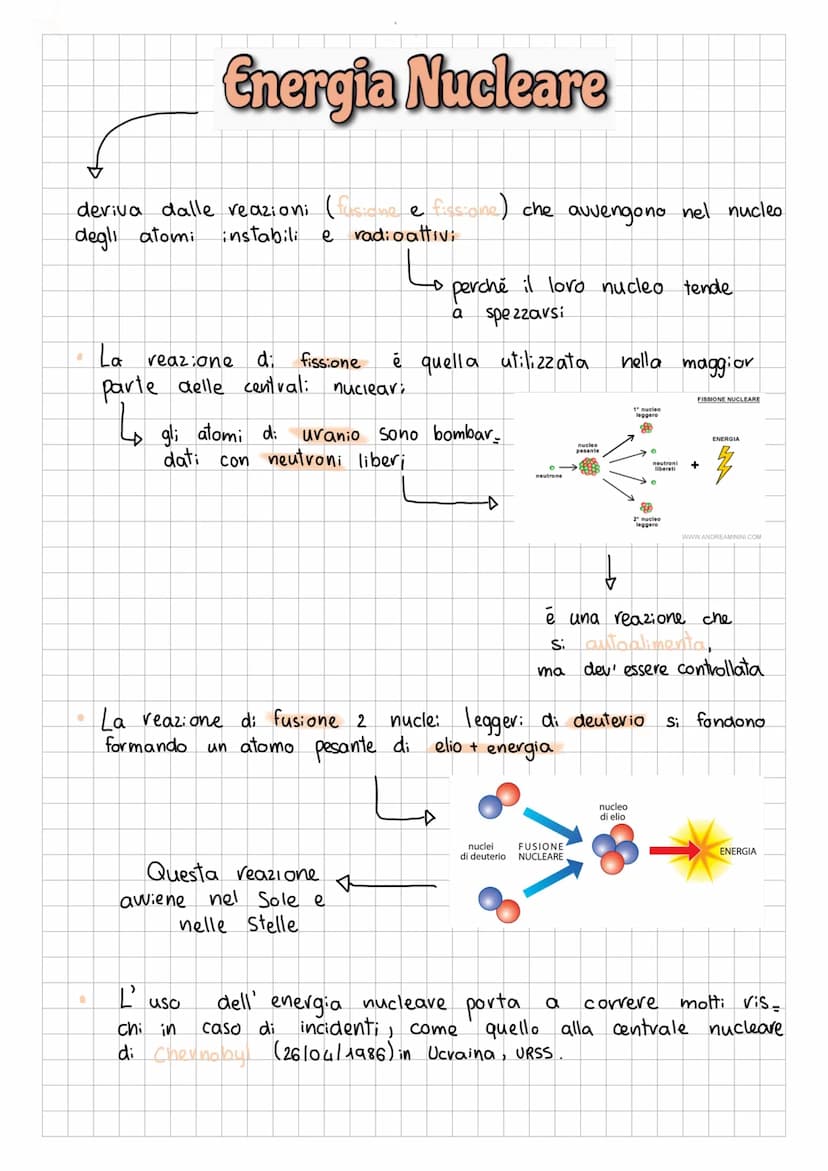 Energia Nucleare
deriva dalle reazioni (fusione e fissione) che avvengono nel nucleo
degli atomi instabili e radioattivi
perché il loro nucleo tende
a spezzarsi
• La reazione di fissione é quella utilizzata nella maggior
parte delle centrali nucleari
gli atomi di uranio sono bombar=
dati con neutroni liberi
FISSIONE NUCLEARE
1° nucleo
leggero
nucleo
pesante
ENERGIA
neutrone
neutroni
liberati
+
2° nucleo
leggero
WWW.ANDREAMININI.COM
é una reazione che
si autoalimenta,
ma dev' essere controllata
• La reazione di fusione 2 nuclei leggeri di deuterio si fondono
formando un atomo pesante di elio + energia
nucleo
di elio
nuclei
di deuterio
FUSIONE
NUCLEARE
ENERGIA
Questa reazione
avviene nel Sole e
nelle Stelle
• L' uso dell' energia nucleare porta a correre molti ris=
chi in caso di incidenti, come quello alla centrale nucleare
di Chernobyl (26/04/1986) in Ucraina, URSS.